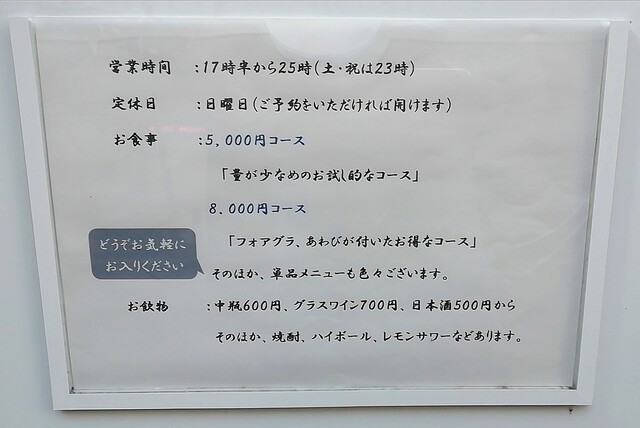 営業時間 :17時半から25時(土・祝は23時)
定休日 :日曜日(ご予約をいただければ開けます)
お食事 :5,000円コース
「量が少なめのお試し的なコース」
8,000円コース
「フォアグラ、あわびが付いたお得なコース」
どうぞお気軽に
お入りください
そのほか、単品メニューも色々ございます。
お飲物 :中瓶600円、グラスワイン700円、日本酒500円から
そのほか、焼酎、ハイボール、レモンサワーなどあります。